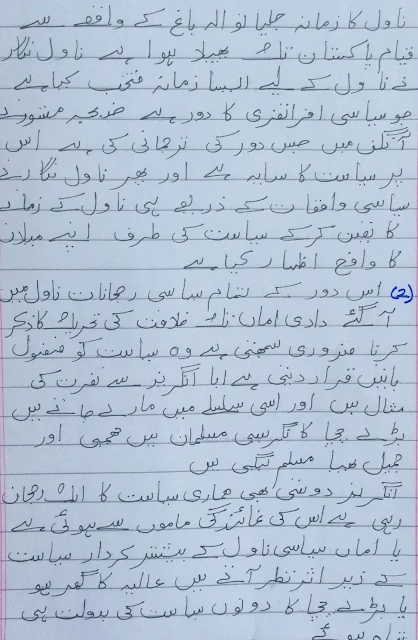 ناول کا زمانہ جلیانوالہ باغ کے واقعے سے
قیام پاکستان تک پھیلا ہوا ہے ناول نگار
نے ناول کے لیے ایسا زمانہ منتخب کیا ہے
جو سیاسی افراتفری کا دور ہے خدیجہ مستور نے
آنگن میں جس دور کی ترجمانی کی ہے اس
پر سیاست کا سایہ ہے اور پھر ناول نگار نے
سیاسی واقعات کے ذریعے ہی ناول کے زمانے
کا تعین کرکے سیاست کی طرف اپنے میلان
کا واضح اظہار کیا ہے
(2) اس دور کے تمام سیاسی رجحانات ناول میں
آ گئے دادی اماں تک خلافت کی تحریک کا ذکر
کرنا ضروری سمجھتی ہے وہ سیاست کو فضول
باتیں قرار دیتی ہے ابا انگریز سے نفرت کی
مثال ہیں اور اسی سلسلے میں مارے جاتے ہیں
بڑے چچا کانگریسی مسلمان ہیں چھمی اور
جمیل بھیا مسلم لیگی ہیں
انگریز دوستی بھی ہماری سیاست کا ایک رجحان
رہی ہے اس کی نمائندگی ماموں سے ہوئی ہے
یا اماں سیاسی ناول کے بیشتر کردار سیاست
کے زیر اثر نظر آتے ہیں عالیہ کا گھر ہو
یا بڑے چچا کا دونوں سیاست کی بدولت ہی